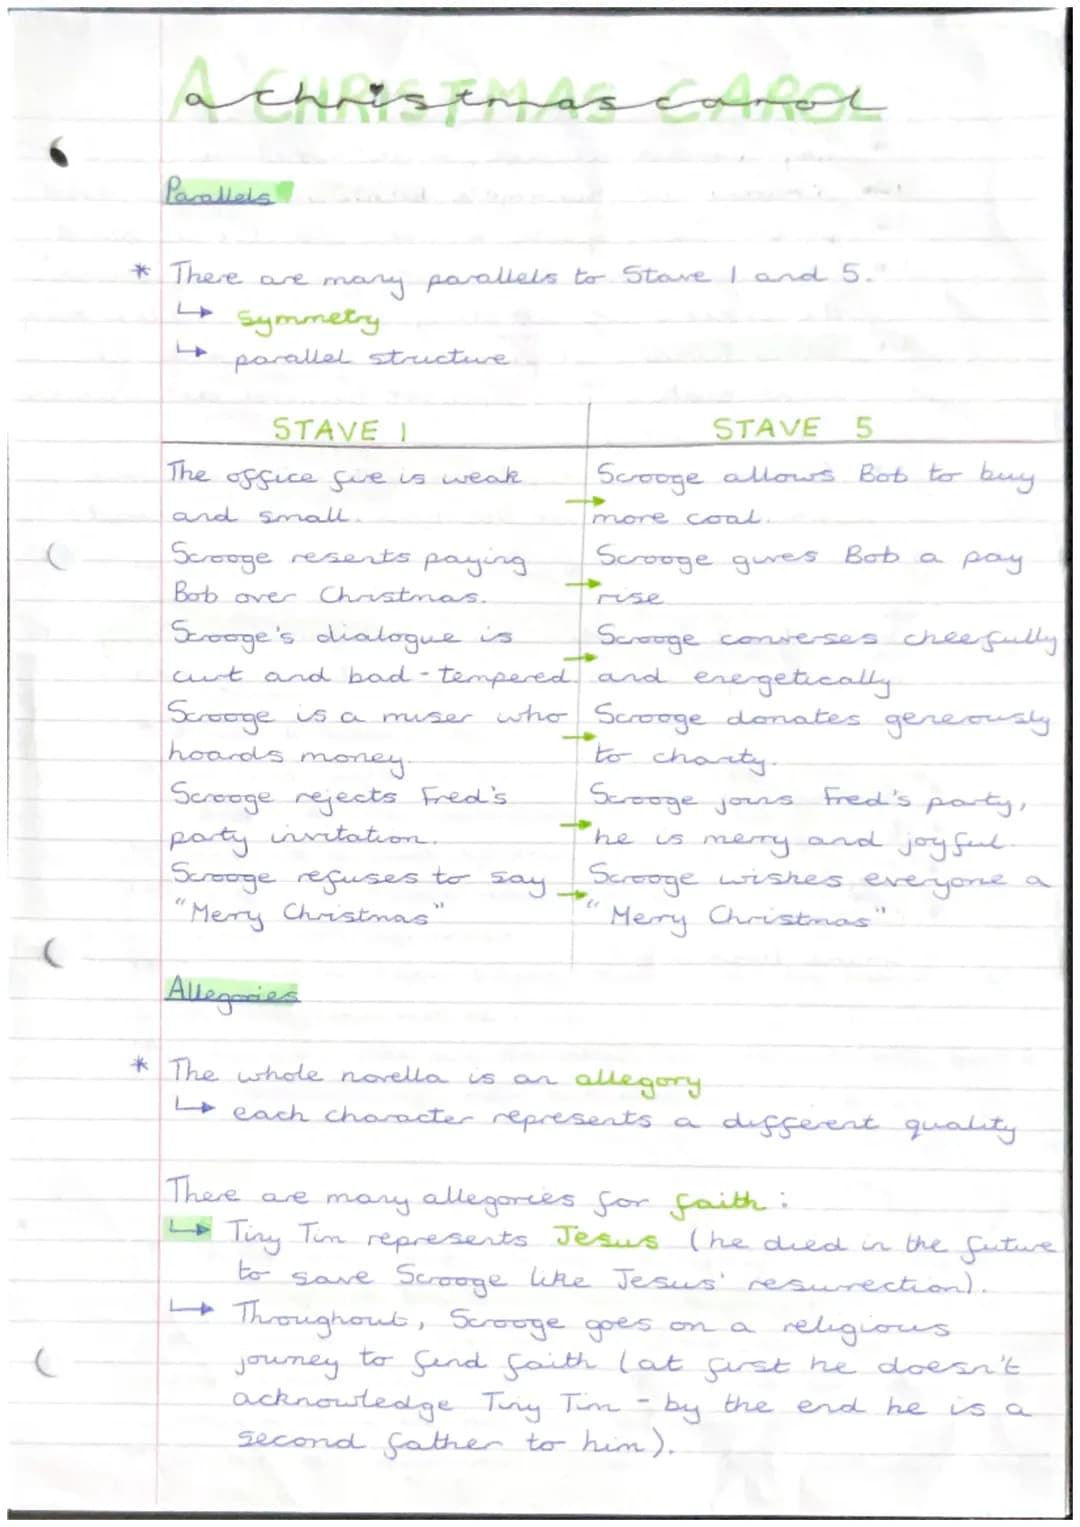 A CHRISTMAS CAROL
a christmas carol
Parallels
* There are many parallels to Stave 1 and 5.
↳ symmetry
↳ parallel structure
STAVE 1 STAVE 5
The office fire is weak → Scrooge allows Bob to buy
and small. more coal.
Scrooge resents paying → Scrooge gives Bob a pay
Bob over Christmas. rise
Scrooge's dialogue is → Scrooge converses cheerfully
curt and bad-tempered. and energetically
Scrooge is a miser who → Scrooge donates generously
hoards money. to charity.
Scrooge rejects Fred's → Scrooge joins Fred's party,
party invitation. he is merry and joyful.
Scrooge refuses to say → Scrooge wishes everyone a
"Merry Christmas" "Merry Christmas"
Allegories
* The whole novella is an allegory
↳ each character represents a different quality
There are many allegories for faith:
↳ Tiny Tim represents Jesus (he died in the future
to save Scrooge like Jesus' resurrection).
↳ Throughout, Scrooge goes on a religious
journey to find faith (at first he doesn't
acknowledge Tiny Tim - by the end he is a
second father to him).